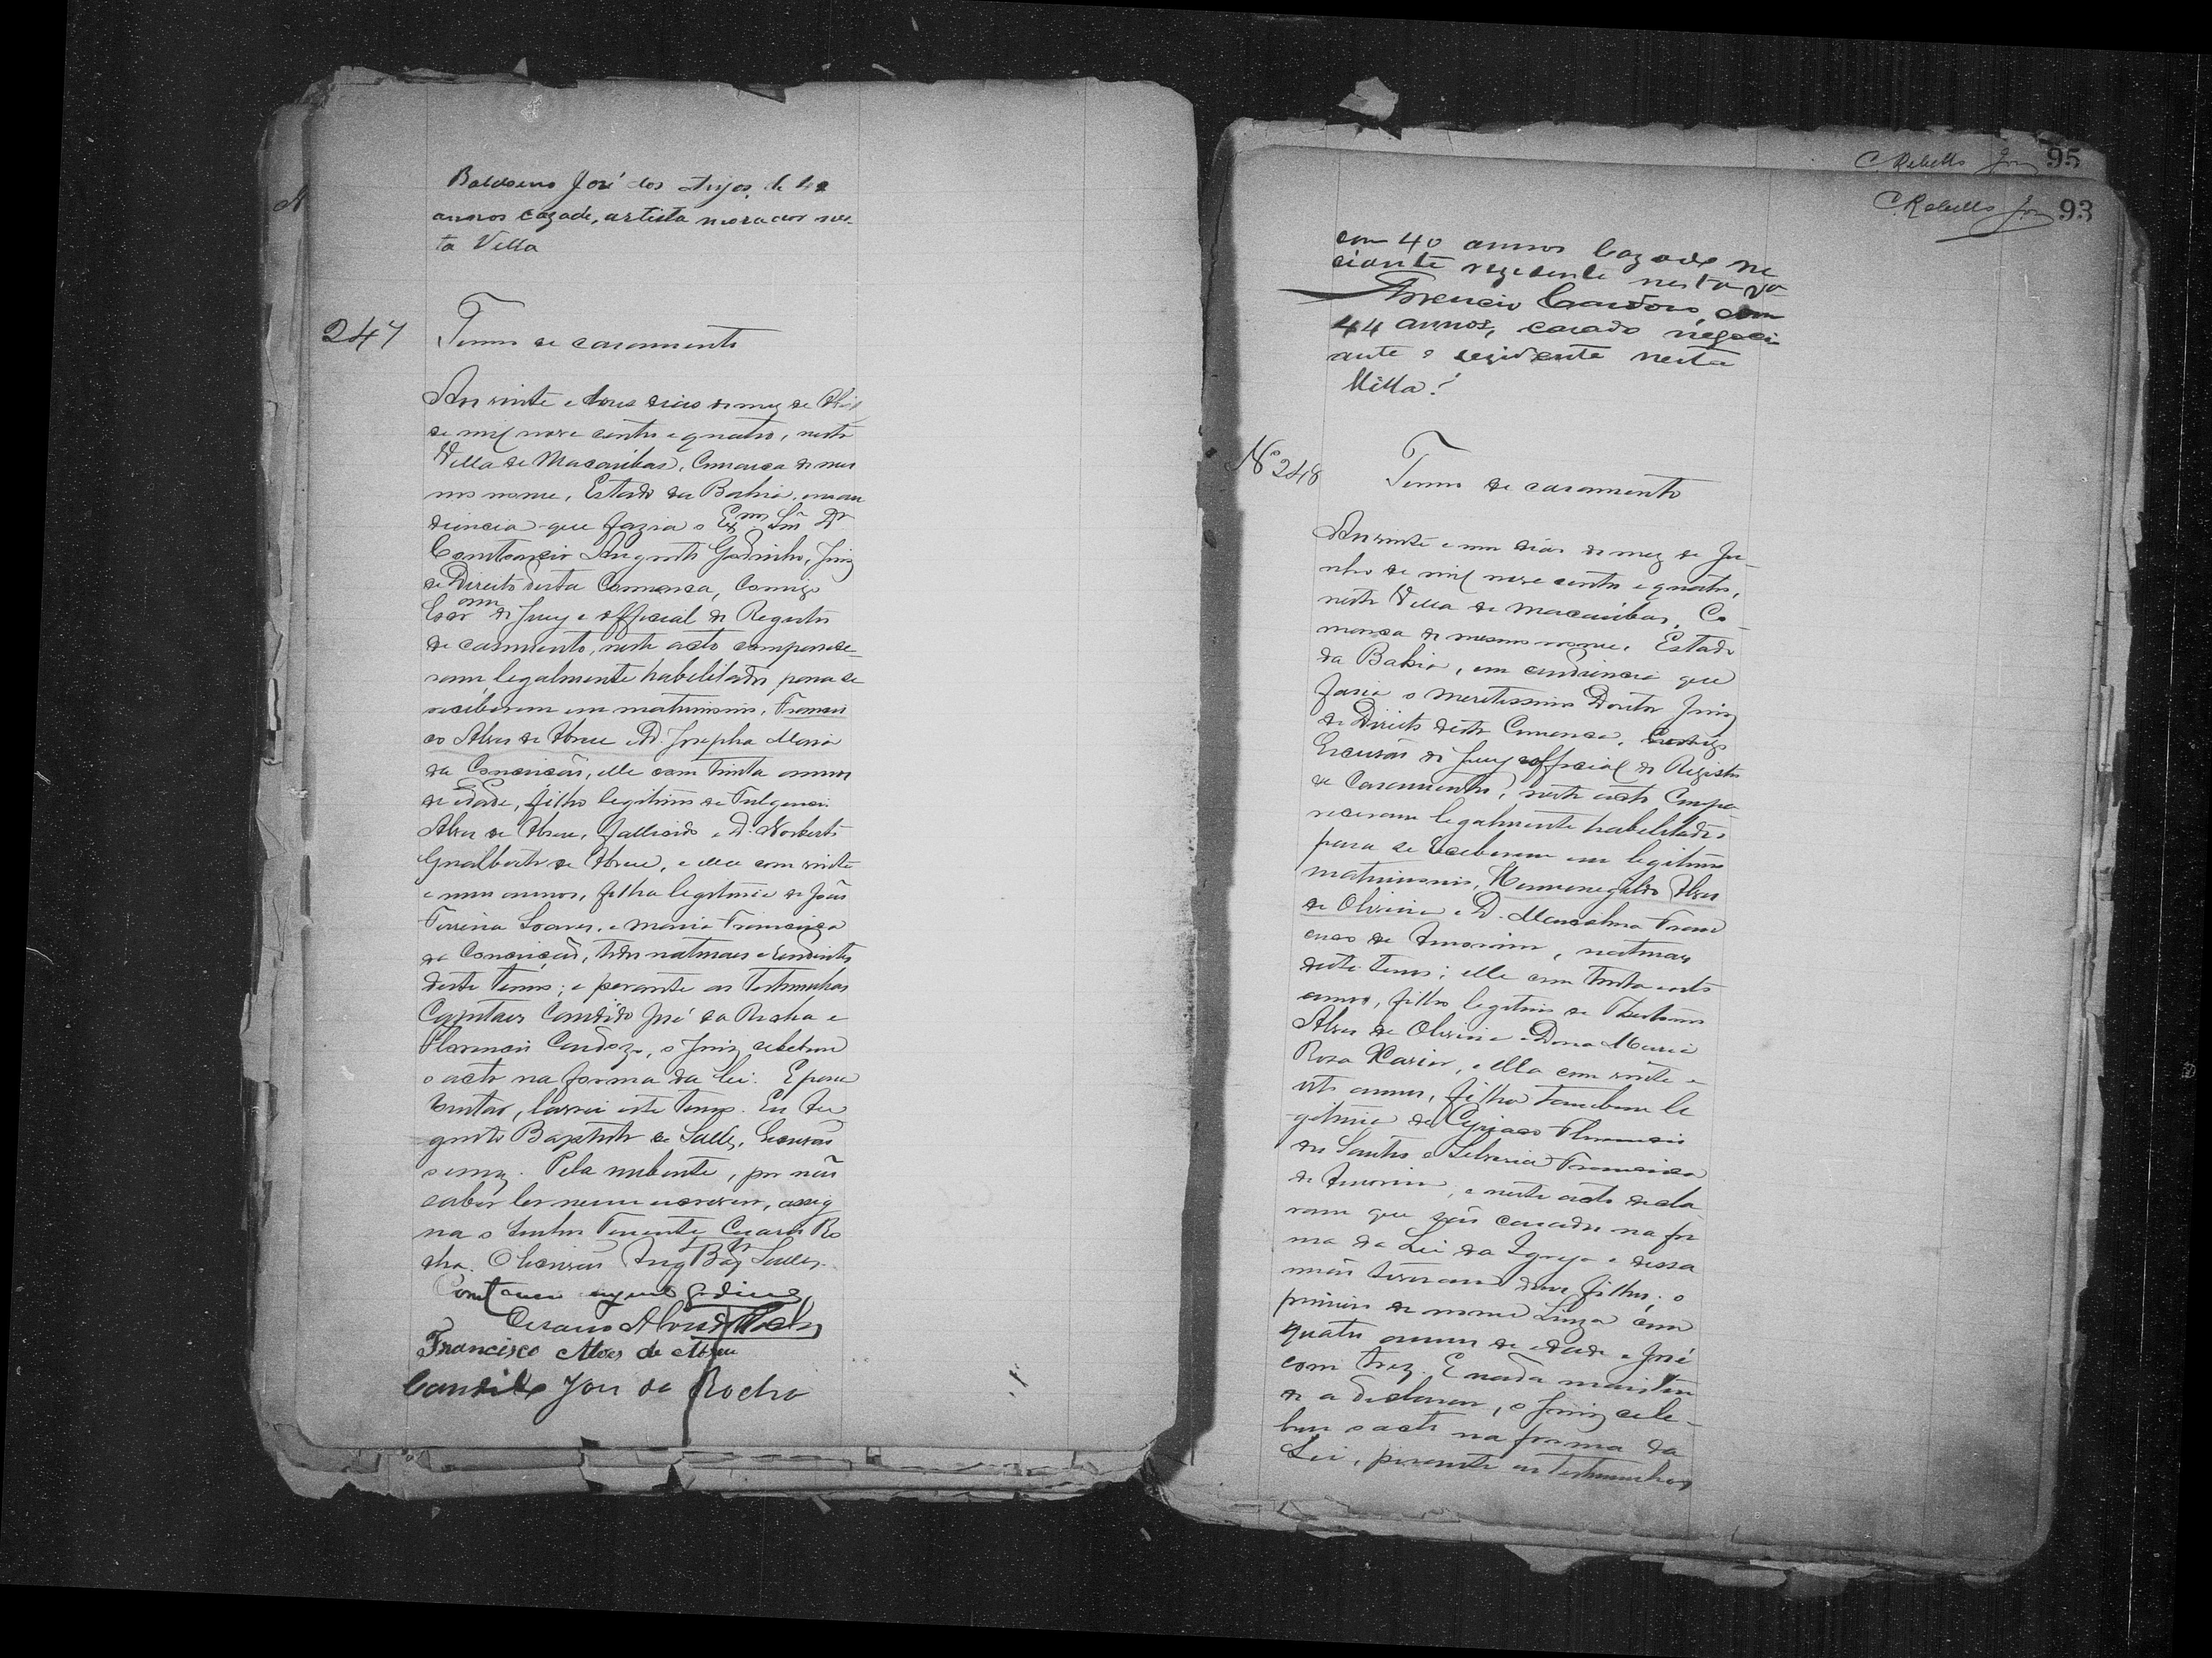 Baldoino José dos Anjos, de 42
annos cazado, artista morador nes-
ta Villa
247
Termo de casamento
Aos vinte e dous dias do mez de Abril
de mil nove centos e quatro, nesta
Villa de Macaúbas, Comarca do mes
mo nome, Estado da Bahia, em au
diencia que fazia o Exmo Snr Dr
Constancio Augusto Godinho, Juiz
de Direito desta Comarca, Comigo
Escram do Jury e official do Registro
de casamento, neste acto comparece-
ram, legalmente habilitados para se
receberem em matrimonio, Francis
co Alves de Abreu e D. Josepha Maria
da Conceição, elle com trinta annos
de edade, filho legitimo de Fulgencio
Alves de Abreu, fallecido e D. Norberta
Gualberto de Abreu, e ella com vinte
e um annos, filha legitima de João
Ferreira Soares, e Maria Francisca
da Conceição, todos naturaes e residentes
deste termo; e perante as testemunhas
Capitães Candido José da Rocha e
Florencio Cardozo, o Juiz celebrou
o acto na forma da lei. E para
constar, lavrei este termo. Eu Au
gusto Baptista de Salles, Escrivão
o escrevy. Pela nubente, por não
saber ler nem escrever, assig
na o Senhor Tenente Cesario Ro
cha. O Escrivão Aug Bapta Salles
Constancio Augusto Godinho
Cesario Alves da Rocha
Francisco Alves de Abreu
Candido José da Rocha
C. Rebello Jor 95
C. Rebello Jor 93
com 40 annos Cazado ne
ciante rezidente nesta va
Florencio Cardoso, com
44 annos, casado negoci
ante e rezidente nesta
Villa.
No 248
Termo de casamento
Aos vinte e um dias do mez de Ju-
nho de mil nove centos e quatro,
nesta Villa de Macaubas, Co-
marca do mesmo nome, Estado
da Bahia, em audiencia que
fasia o meretissimo Doutor Juiz
de Direito desta Comarca, Comigo
Escrivão do Jury e official do Registro
de Casamentos, neste acto Compa-
receram legalmente habilitados
para se receberem em legitimo
matrimonio, Hermenegildo Alves
de Oliveira e D. Francis
ca de Amorim, naturaes
deste termo; elle com trinta e oito
annos, filho legitimo de
Alves de Oliveira e Dona Maria
Rosa Xavier, e ella com vinte e
oito annos, filha tambem le
gitima de Cyriaco Florencio
dos Santos e Silveria Francisca
de Amorim, e neste acto decla
ram que são casados na for
ma da Lei da Igreja e dessa
união tiveram dous filhos; o
primeiro de nome Luiza com
quatro annos de edade e José
com trez. E nada mais ten
do a declarar, o Juiz cele-
brou o acto na forma da
Lei, perante as testemunhas